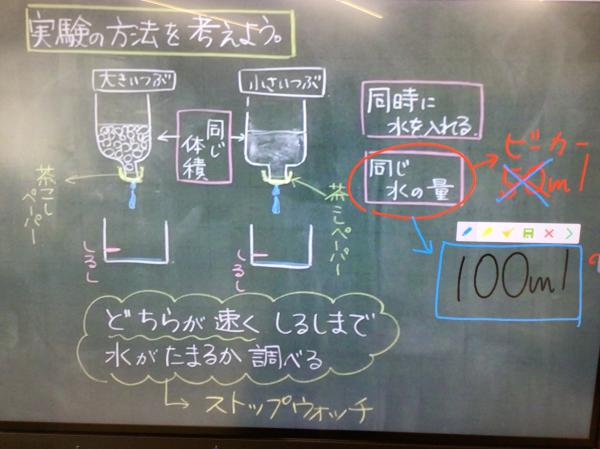 実験の方法を考えよう。
大きいつぶ
小さいつぶ
同じ
体積
茶こし
ペーパー
茶こしペーパー
しるし
しるし
同時に
水を入れる。
同じ
水の量
ビーカー
ml
100ml
どちらが速くしるしまで
水がたまるか調べる
ストップウォッチ